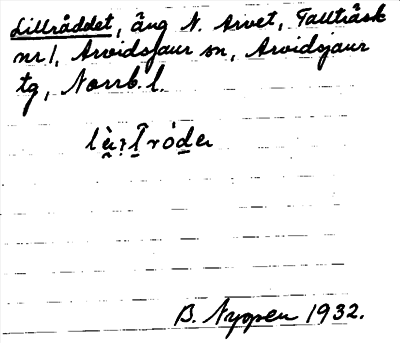 Lillråddet, äng N. Arvet, Tallträsk
nr 1, Arvidsjaur sn, Arvidsjaur
tg, Norrb. l.
B. Nygren 1932.